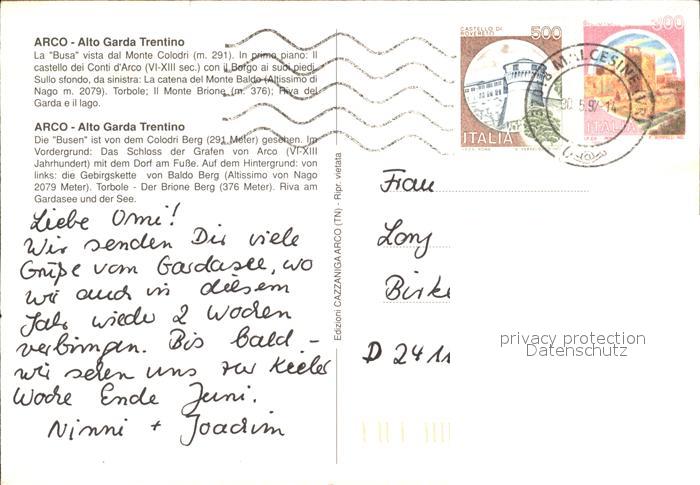 ARCO - Alto Garda Trentino
La "Busa" vista dal Monte Colodri (m. 291). In primo piano: Il
castello dei Conti d'Arco (VI-XIII sec.) con il Borgo ai suoi piedi.
Sullo sfondo, da sinistra: La catena del Monte Baldo (Altissimo di
Nago m. 2079). Torbole; Il Monte Brione (m. 376); Riva del
Garda e il lago.
ARCO - Alto Garda Trentino
Die "Busen" ist von dem Colodri Berg (291 Meter) gesehen. Im
Vordergrund: Das Schloss der Grafen von Arco (VI-XIII
Jahrhundert) mit dem Dorf am Fuße. Auf dem Hintergrund: von
links: die Gebirgskette von Baldo Berg (Altissimo von Nago
2079 Meter). Torbole - Der Brione Berg (376 Meter). Riva am
Gardasee und der See.
Liebe Omi!
Wir senden Dir viele
Grüße vom Gardasee, wo
wir auch in diesem
Jahr wieder 2 Wochen
verbringen. Bis bald -
wir sehen uns zur Kieler
Woche Ende Juni.
Ninni + Joachim
Edizioni CAZZANIGA ARCO (TN) - Ripr. vietata
CASTELLO DI
ROVERETO
500
ITALIA
300
ITALIA
MALCESINE (VR)
Frau
Lony
Birke
D 2411
privacy protection
Datenschutz